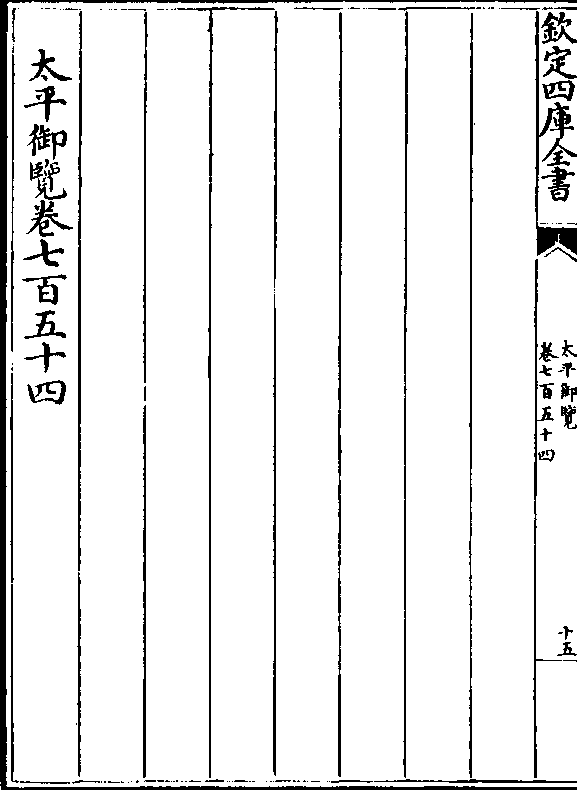 欽定四庫全書
太平御覽
卷七百五十四
十五
太平御覽卷七百五十四